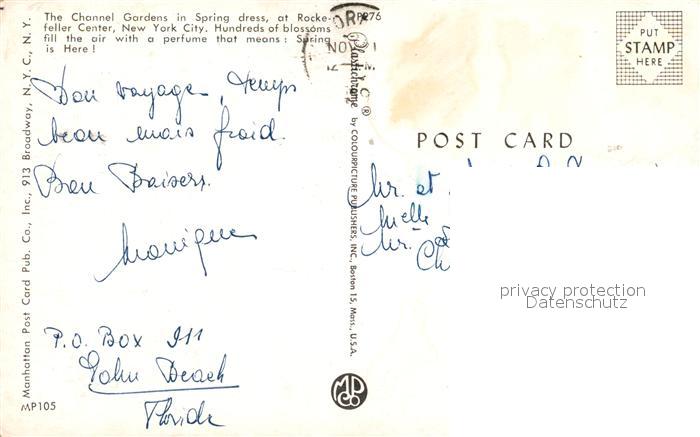 The Channel Gardens in Spring dress, at Rocke-
feller Center, New York City. Hundreds of blossoms
fill the air with a perfume that means : Spring
is Here !
P276
NOV
PUT
STAMP
HERE
POST CARD
Bon voyage, temps
beau mais froid.
Bon Baisers.
Monique
P.O. Box 911
Beach
Floride
Mr. et
Melle
Mr.
Ch
privacy protection
Datenschutz
Manhattan Post Card Pub. Co., Inc., 913 Broadway, N.Y.C., N.Y.
MP105
Plastichrome ® by COLOURPICTURE PUBLISHERS, INC., Boston 15, Mass., U.S.A.
MP
CO